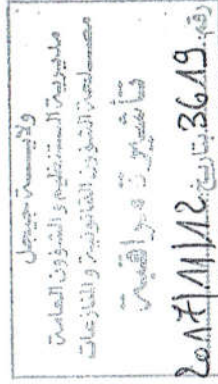 ولايـــة جيجل
مديرية التنظيم و الشؤون العامة
مصلحة الشؤون القانونية و المنازعات
تأشيرة مراقبة
رقم: 3619 بتاريخ: 2017/11/12